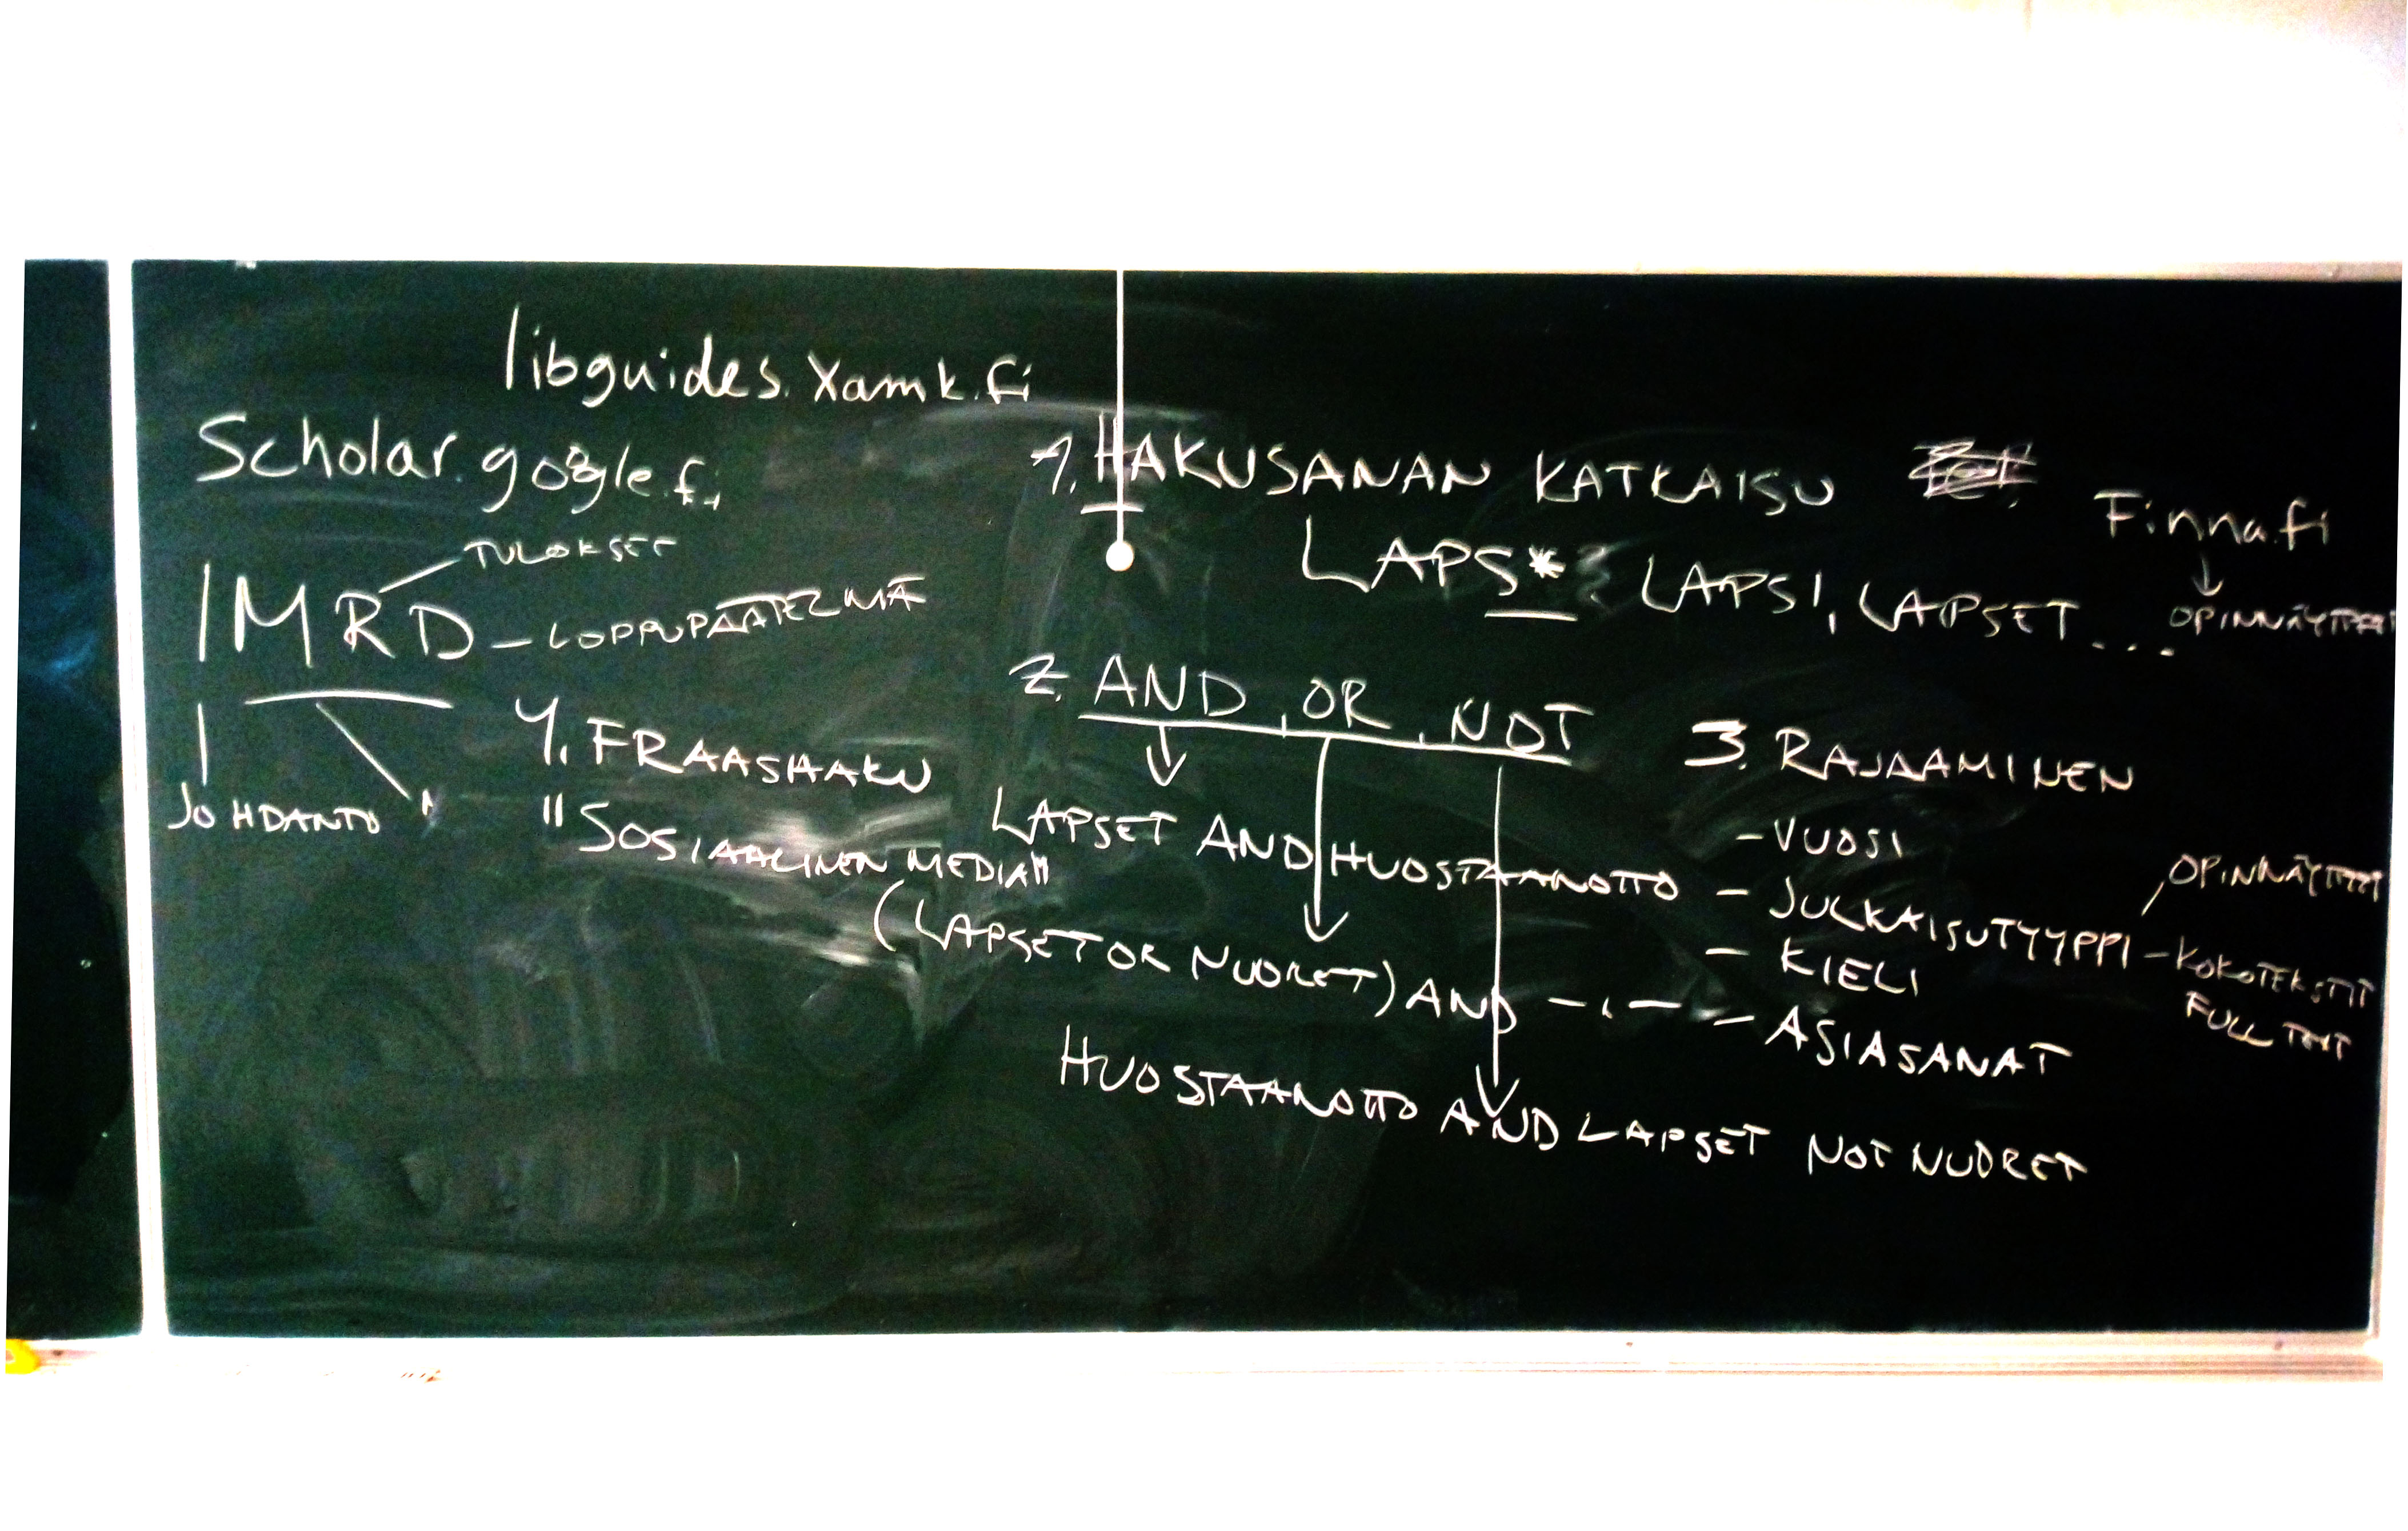 libguides.xamk.fi
Scholar.google.fi
TULOKSET
IMRD - LOPPUPÄÄTELMÄ
JOHDANTO
4. FRAASIHAKU
"SOSIAALINEN MEDIA"
1. HAKUSANAN KATKAISU
LAPS* LAPSI, LAPSET ...
Finna.fi
OPINNÄYTTEET
2. AND, OR, NOT
LAPSET AND HUOSTAANOTTO
(LAPSET OR NUORET) AND - . -
HUOSTAANOTTO AND LAPSET NOT NUORET
3. RAJAAMINEN
- VUOSI
- JULKAISUTYYPPI - KOKOTEKSTIT
OPINNÄYTTEET
FULL TEXT
- KIELI
- ASIASANAT